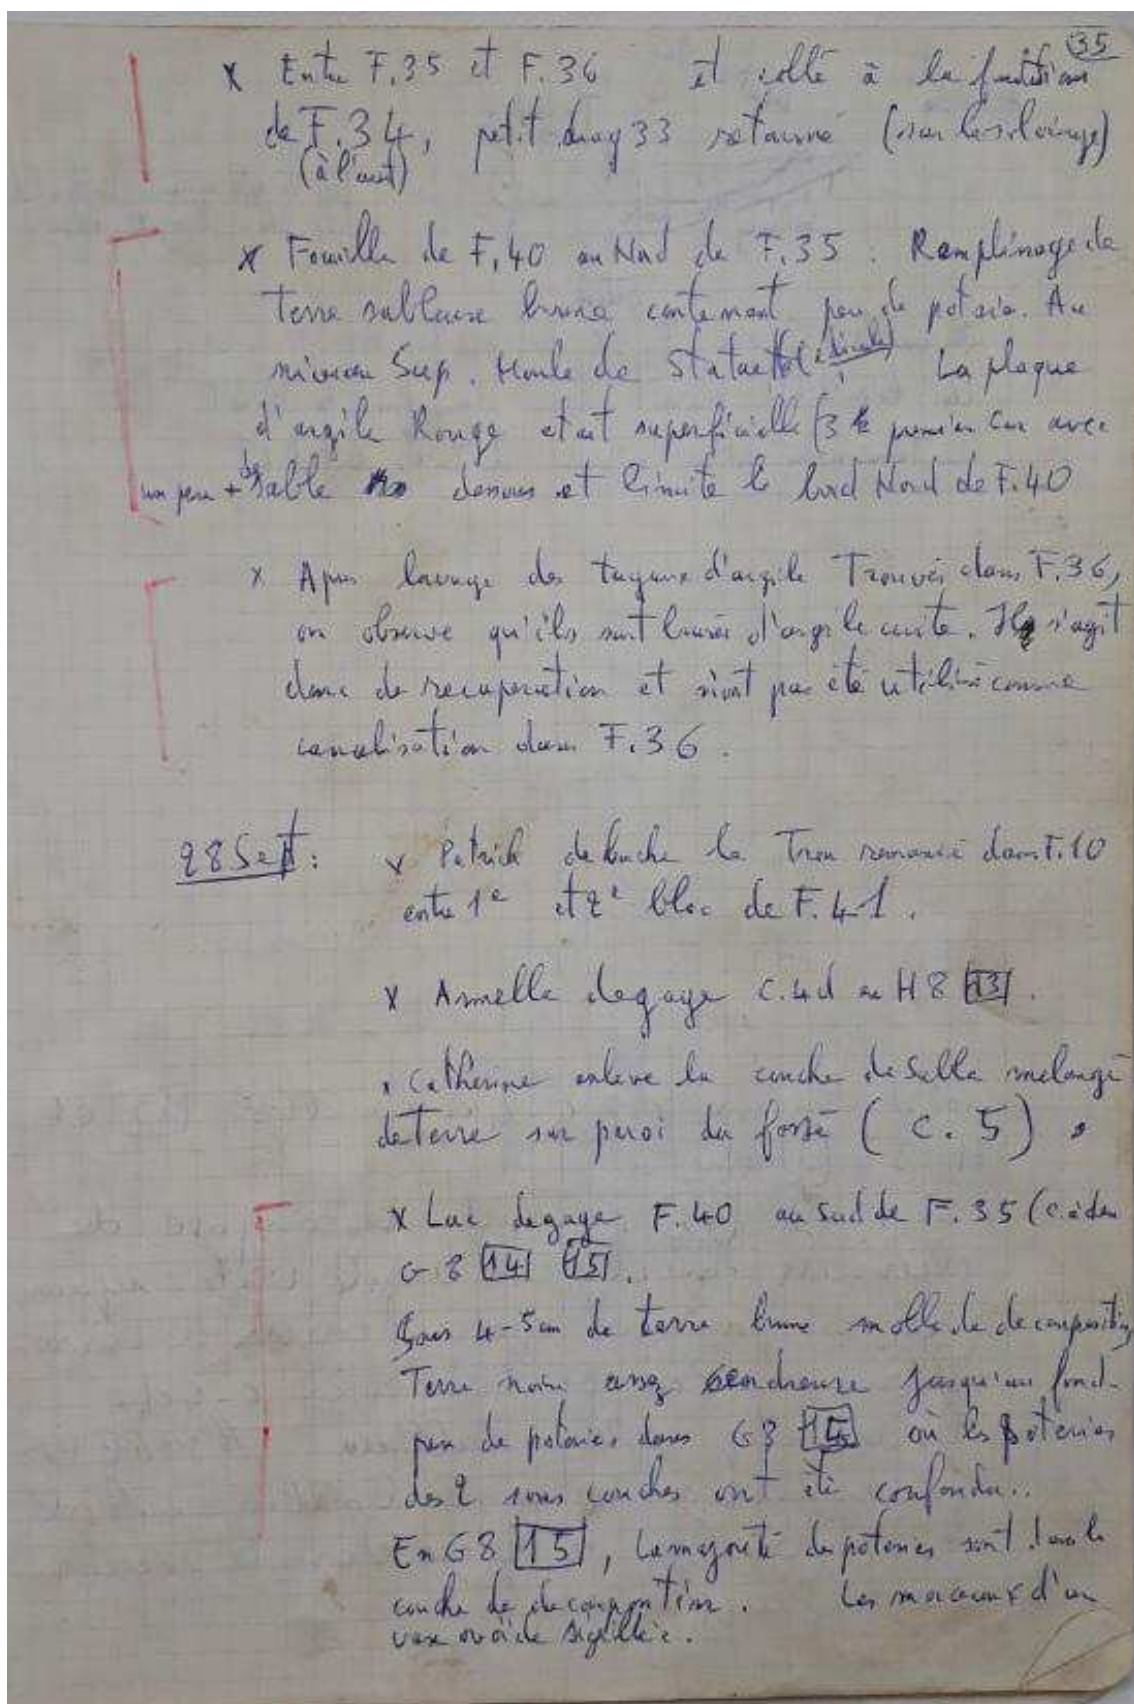 35
x Entre F.35 et F.36 et collé à la fondation
de F.34, petit drag 33 retourné
(à l'ouest)
x Fouille de F.40 au Nord de F.35. Remplissage de
terre sableuse brune contenant peu de poterie. Au
niveau Sup. Moule de Statuette La plaque
d'argile Rouge etait superficielle (3 premier cm avec
un peu + de sable dessous et limite le bord Nord de F.40
x Apres lavage des tuyaux d'argile Trouvés dans F.36,
on observe qu'ils sont d'argile cuite. Il s'agit
donc de recuperation et n'ont pas été utilisé comme
canalisation dans F.36.
28 Sept: x Patrick debouche le Trou remanié dans F.10
entre 1e et 2e bloc de F.41.
x Armelle degage C.4d en H8 13.
. Catherine enleve la couche de Sable melangé
de terre sur paroi du fossé (C.5).
x Luc degage F.40 au Sud de F.35 (c.à.d en
G8 14 15.
Sous 4-5 cm de terre brune molle de decomposition,
Terre noire assez cendreuse jusqu'au fond.
peu de poteries dans G8 où les poteries
des 2 sous couches ont été confondu..
En G8 15, la majorité des poteries sont dans la
couche de decomposition. Les morceaux d'un
vase ovoïde sigillée.